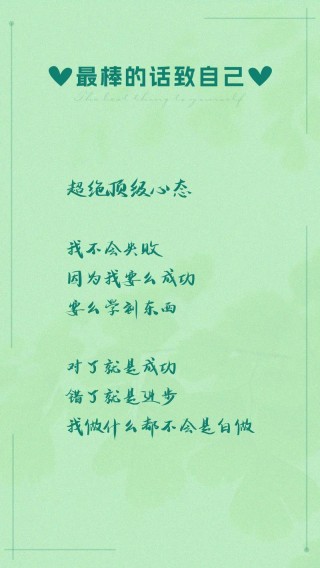 ♥最棒的话致自己♥
The best thing to yourself
超绝顶级心态
我不会失败
因为我要么成功
要么学到东西
对了就是成功
错了就是进步
我做什么都不会是白做